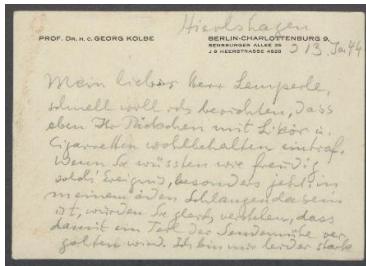 Hierlshagen
PROF. DR. H. C. GEORG KOLBE
BERLIN-CHARLOTTENBURG 9,
SENSBURGER ALLEE 25
J 9 HEERSTRASSE 4625
13. Jan. 44
Mein lieber Herr Lemperle,
schnell will ich berichten, dass
eben Ihr Päckchen mit Likör u.
Cigaretten wohlbehalten eintraf.
Wenn Sie wüssten wie freudig
solch' Ereignis, besonders jetzt in
meinem öden Schlangendasein
ist, würden Sie gleich verstehen, dass
damit ein Teil der Sendemühe ver-
golten wird. Ich bin mir leider stark